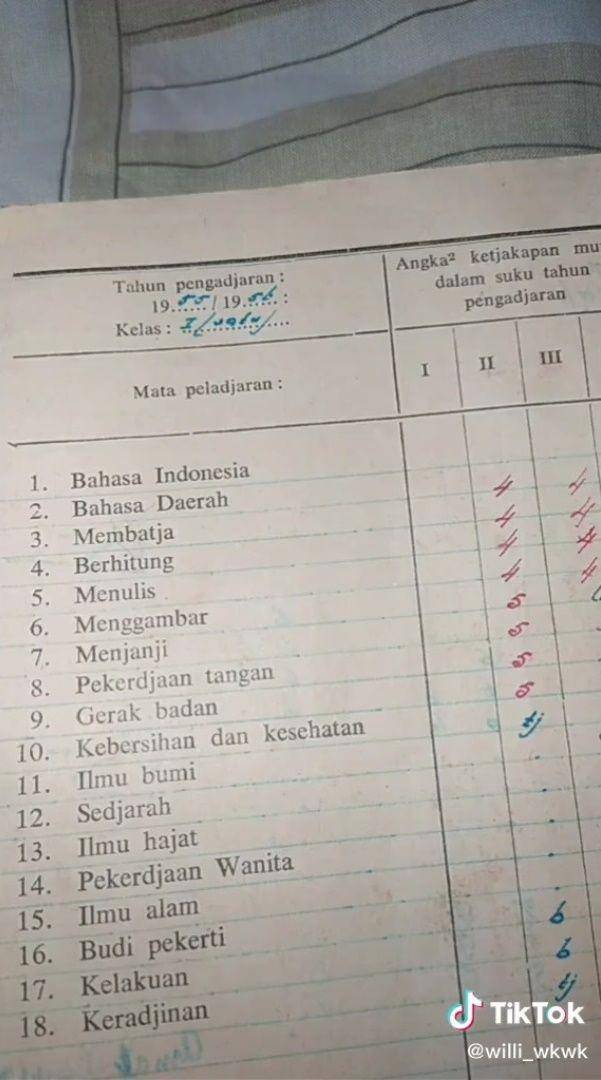 Tahun pengadjaran :
1955 / 1956 :
Kelas : I / satu /
Mata peladjaran :
Angka² ketjakapan mu
dalam suku tahun
pengadjaran
I II III
1. Bahasa Indonesia
2. Bahasa Daerah 4 4
3. Membatja 4 4
4. Berhitung 4 4
5. Menulis 4 4
6. Menggambar 5
7. Menjanji 5
8. Pekerdjaan tangan 5
9. Gerak badan 5
10. Kebersihan dan kesehatan tj
11. Ilmu bumi
12. Sedjarah
13. Ilmu hajat
14. Pekerdjaan Wanita
15. Ilmu alam
16. Budi pekerti 6
17. Kelakuan 6
18. Keradjinan tj
TikTok
@willi_wkwk